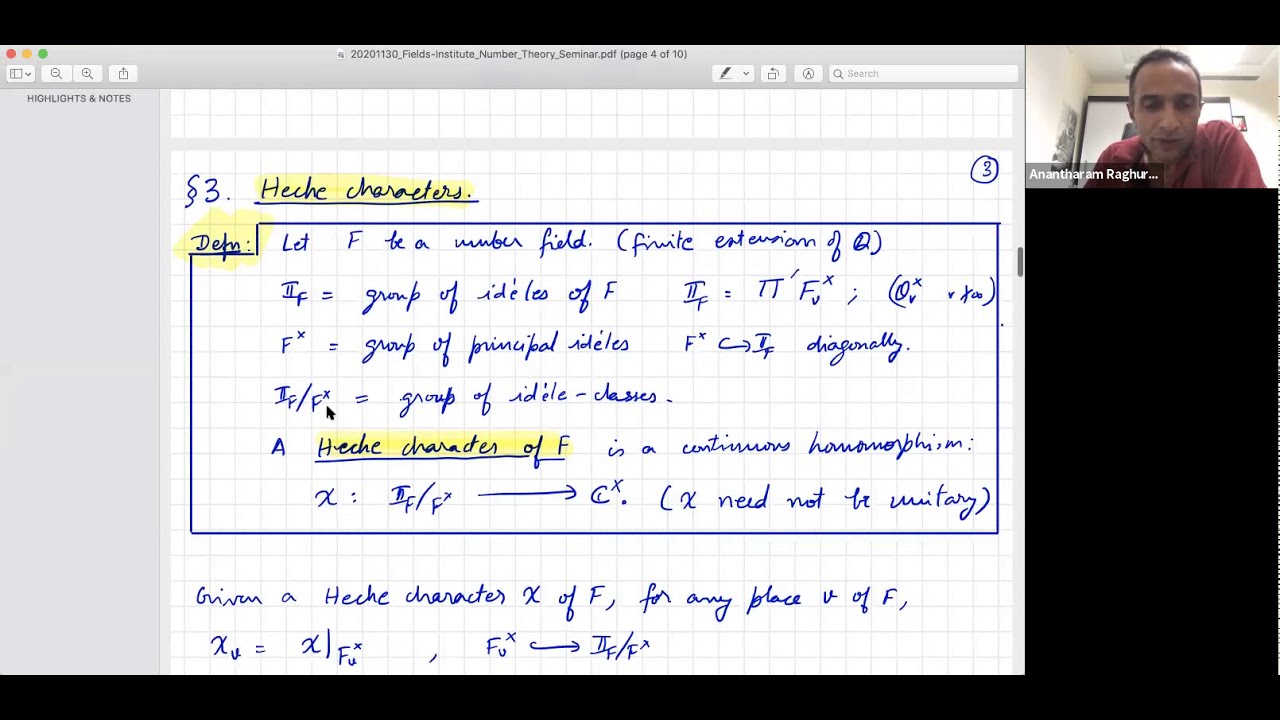 20201130_Fields-Institute_Number_Theory_Seminar.pdf (page 4 of 10)
Search
HIGHLIGHTS & NOTES
Anantharam Raghur...
③
§3. Hecke characters.
Defn: Let F be a number field. (finite extension of ℚ)
𝕀_F = group of idèles of F 𝕀_F = Π′ F_v^× ; (O_v^× v∤∞)
F^× = group of principal idèles F^× ↪ 𝕀_F diagonally.
𝕀_F/F^× = group of idèle-classes.
A Hecke character of F is a continuous homomorphism:
χ : 𝕀_F/F^× ⟶ ℂ^×. (χ need not be unitary)
Given a Hecke character χ of F, for any place v of F,
χ_v = χ|_{F_v^×} , F_v^× ↪ 𝕀_F/F^×